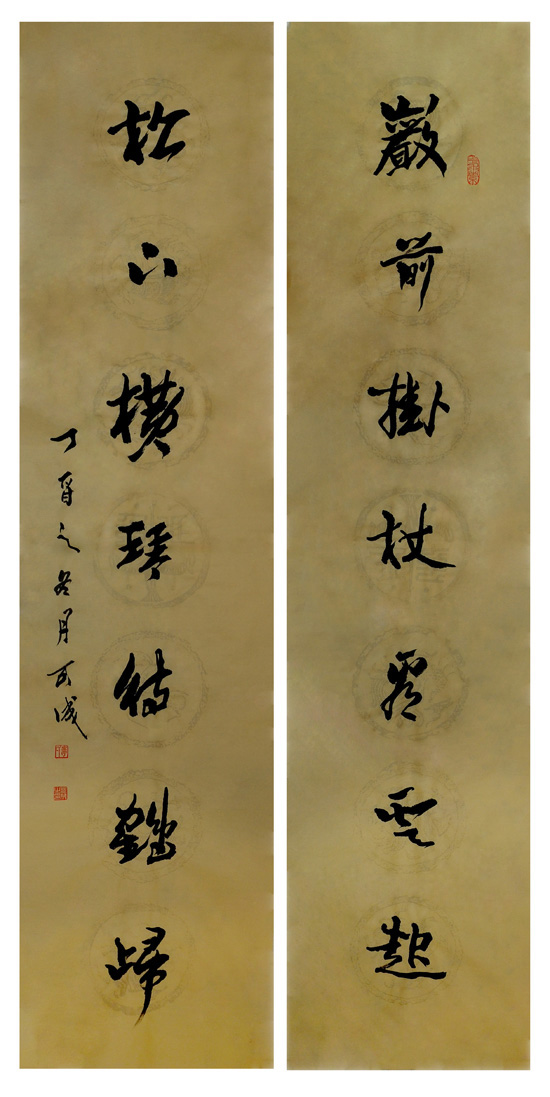 巖前掛杖看雲起
松下橫琴待鶴歸
丁酉之冬月可成